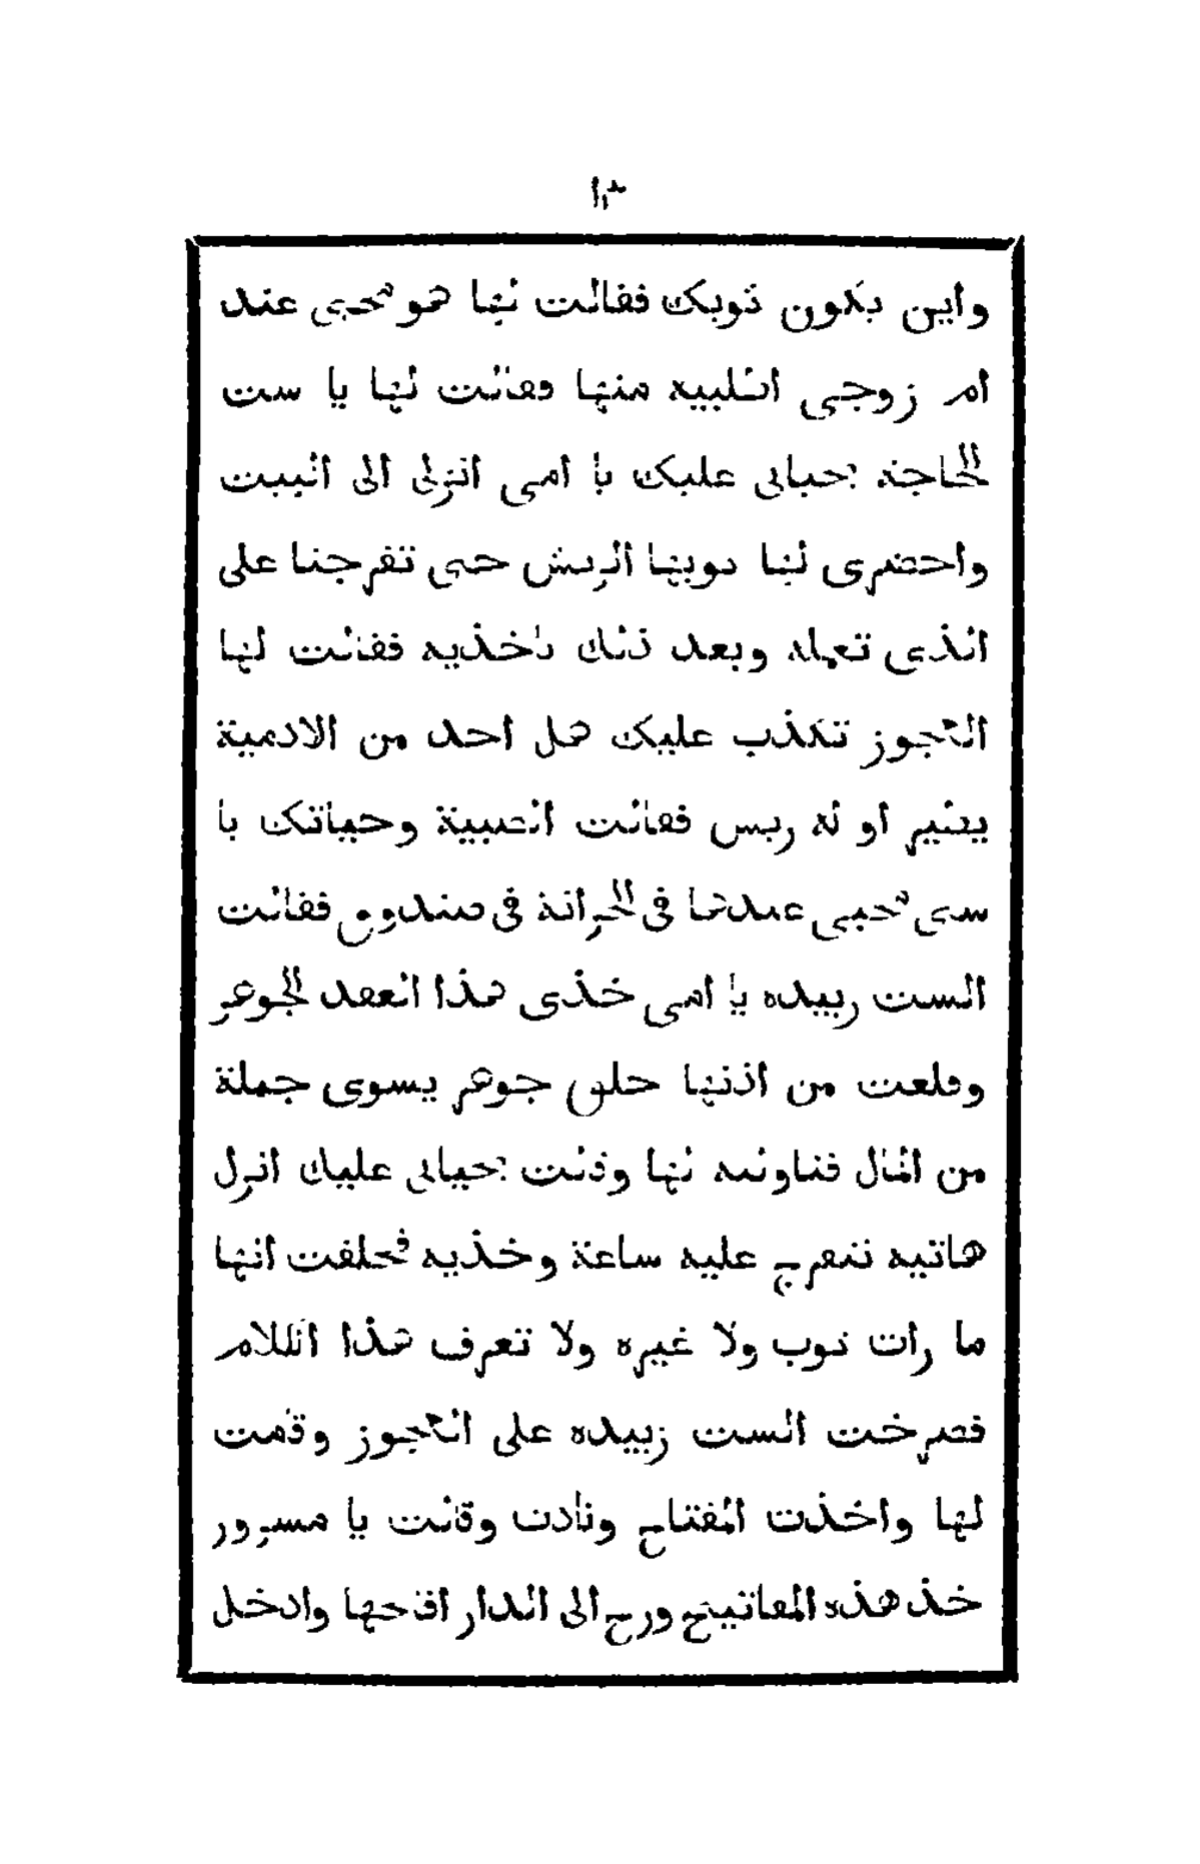 واين يكون ثوبك فقالت لها هو تحبى عند
ام زوجى اطلبيه منها فقالت لها يا ست
الحاجة بحياتى عليك يا امى انزلى الى البيت
واحضرى لها ثوبها الريش حتى تفرجنا على
الذى تعمله وبعد ذلك تاخذيه فقالت لها
العجوز تكذب عليك هل احد من الادمية
يطير او له ريش فقالت الصبية وحياتك يا
ستى تحبى عندها فى الخزانة فى صندوق فقالت
الست زبيده يا امى خذى هذا العقد الجوهر
وقلعت من اذنها حلق جوهر يسوى جملة
من المال فناولته لها وقالت بحياتى عليك انزل
هاتيه نتفرج عليه ساعة وخذيه فحلفت انها
ما رات ثوب ولا غيره ولا تعرف هذا الكلام
فصرخت الست زبيده على العجوز وقامت
لها واخذت المفتاح ونادت وقالت يا مسرور
خذ هذه المفاتيح ورح الى الدار افتحها وادخل